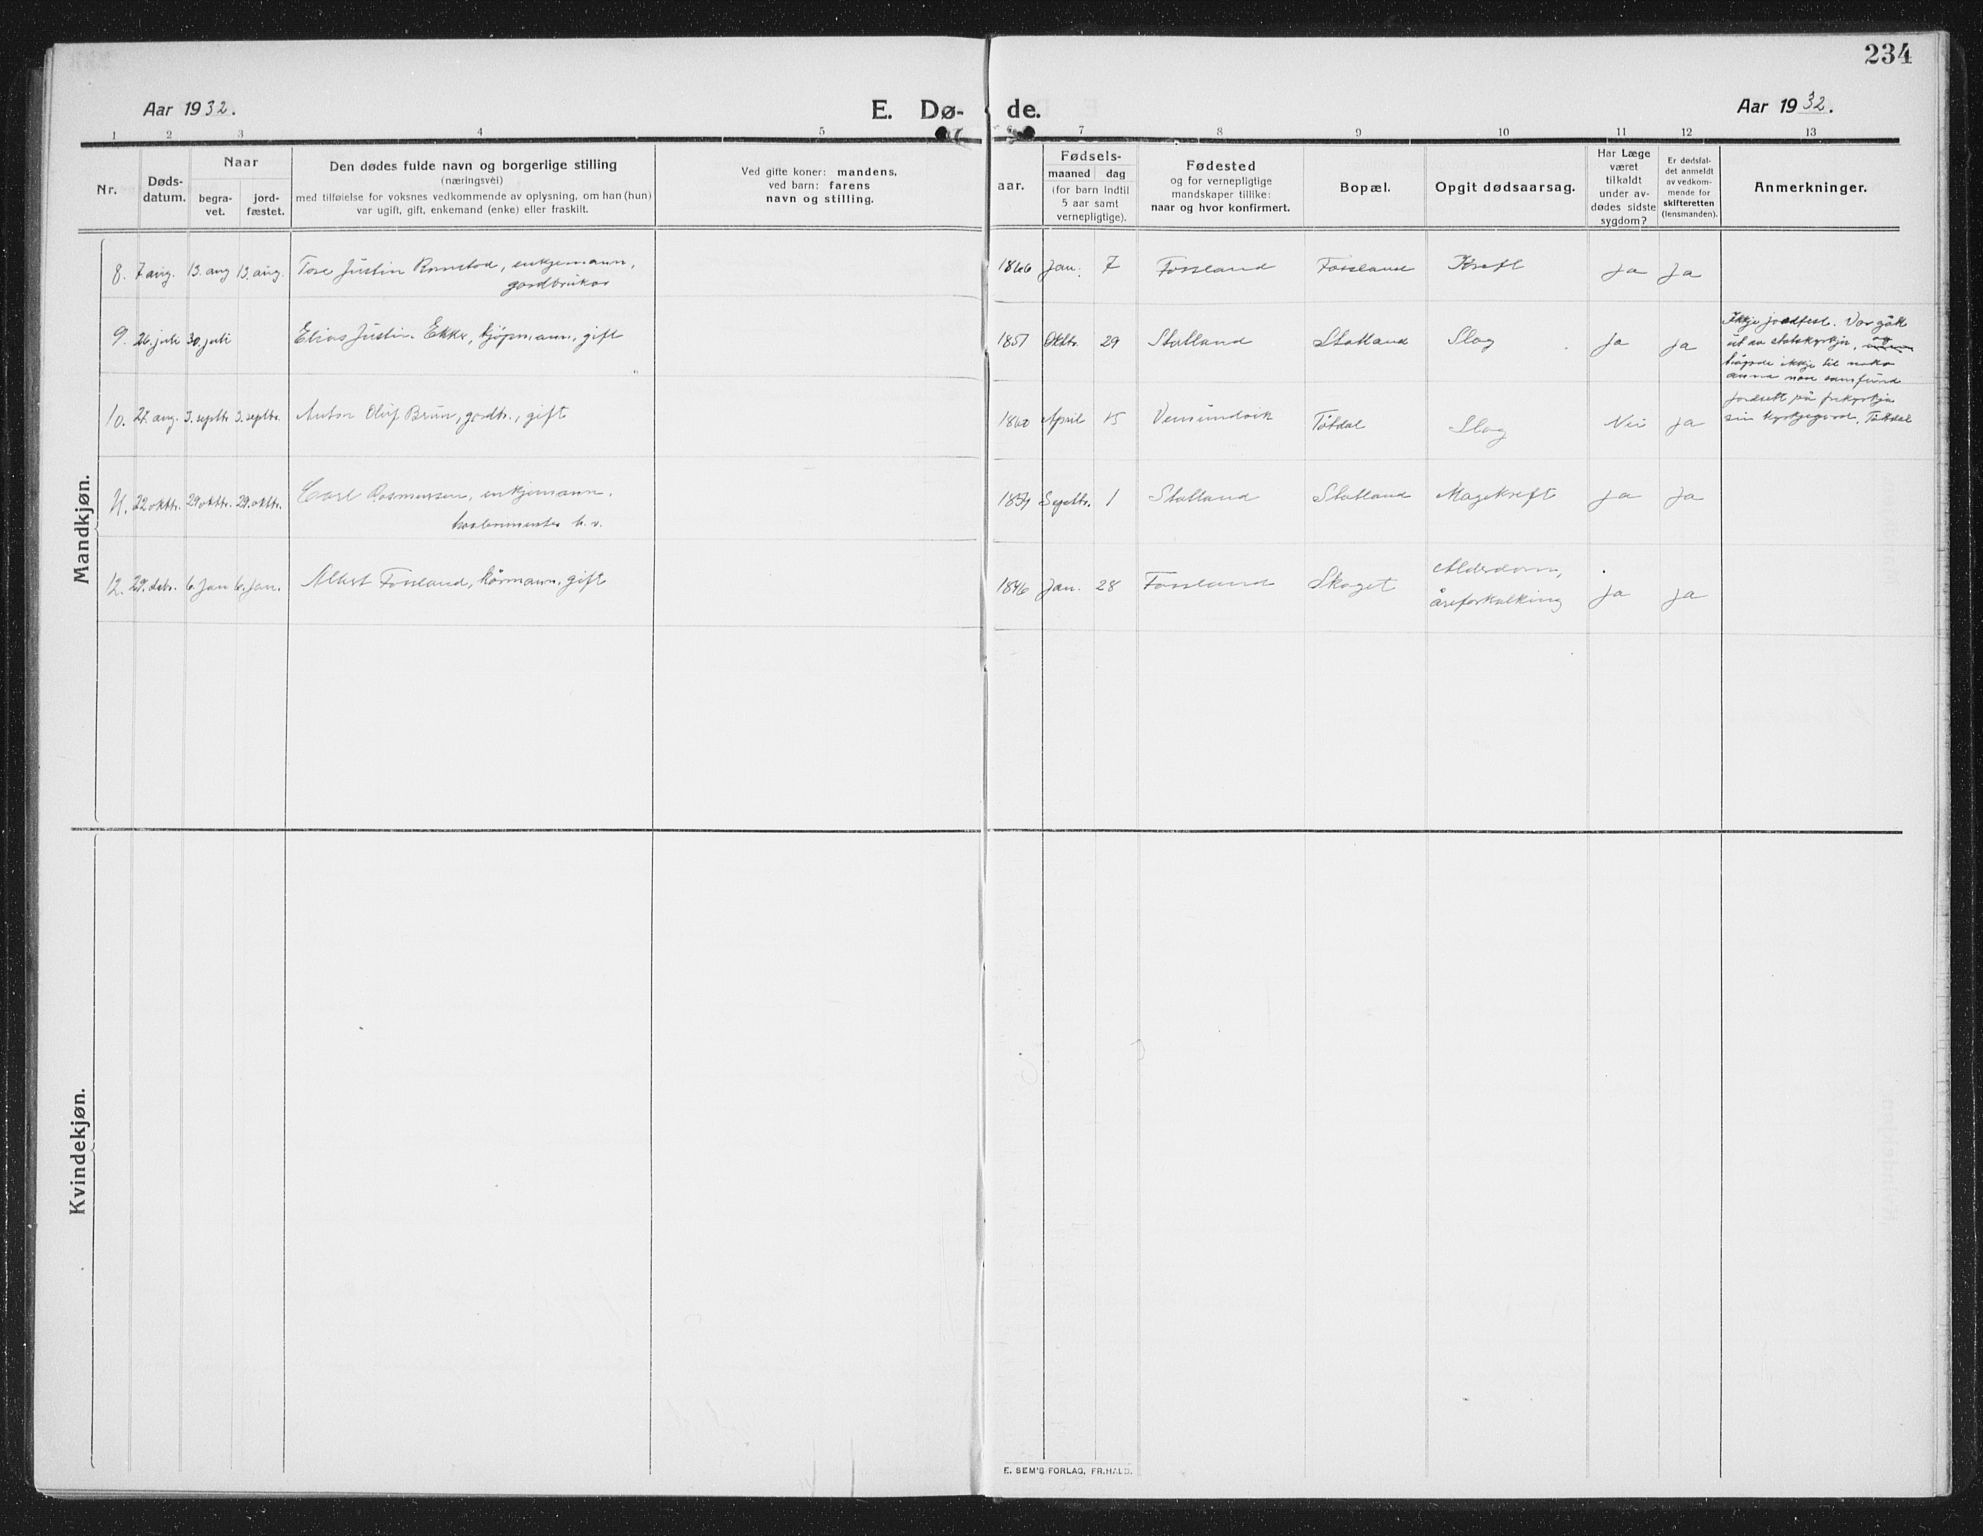 234
Aar 1932.
E. Dø- de.
Aar 1932.
1 2 3 4 5 6 7 8 9 10 11 12 13
Nr.
Døds-
datum.
Naar
begra-
vet.
jord-
fæstet.
Den dødes fulde navn og borgerlige stilling
(næringsvei)
med tilføielse for voksnes vedkommende av oplysning, om han (hun)
var ugift, gift, enkemand (enke) eller fraskilt.
Ved gifte koner: mandens,
ved barn: farens
navn og stilling.
aar.
Fødsels-
maaned dag
(for barn indtil
5 aar samt
vernepligtige).
Fødested
og for vernepligtige
mandskaper tillike:
naar og hvor konfirmert.
Bopæl.
Opgit dødsaarsag.
Har Læge
været
tilkaldt
under av-
dødes sidste
sygdom?
Er dødsfal-
det anmeldt
av vedkom-
mende for
skifteretten
(lensmanden).
Anmerkninger.
Mandkjøn.
8. 7 aug. 13. aug 13. aug. Tore Justin Romstad, enkjemann, 1866 Jan. 7 Fossland Fossland Kreft Ja Ja
gardbrukar
9. 26. juli 30. juli Elias Justin Ekker, kjøpmann, gift 1857 Oktbr. 29 Statland Statland Slag Ja Ja
Ikkje jordfest. Var gått
ut av statskyrkja, og
høyrde ikkje til noko
anna
jordsett på frikyrkja
sin kyrkjegard, Tøtdal
10. 27. aug. 3. septbr. 3. septbr. Anton Oluf Brun, gardbr., gift 1860 April 15 Vemundvik Tøtdal Slag Nei Ja
11. 22 oktbr. 29 oktbr. 29. oktbr. Carl Rasmussen, enkjemann, Septbr. 1 Statland Statland Magekreft Ja Ja
12. 29. desbr. 6. jan 6. jan. Albert Fossland, kårmann, gift 1846 Jan. 28 Fossland Skaget Alderdom,
åreforkalking Ja Ja
Kvindekjøn.
E. SEM'S FORLAG, FR.HALD.